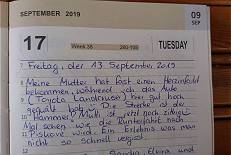 SEPTEMBER 2019
09
SEP
17
Week 38
260-105
TUESDAY
7 Freitag, der 13. September 2019
8 Meine Mutter hat fast einen Herzinfarkt
bekommen, während ich das Auto
9 (Toyota Landcruiser) hier gut hoch
gejagt hab. Die Strecke ist der
10 Hammer! Muss ich jetzt noch zeigen
Mal schauen wie die Runterfahrt nach
11 wird. Ein Erlebnis was man
nicht so schnell vergisst.
12 und